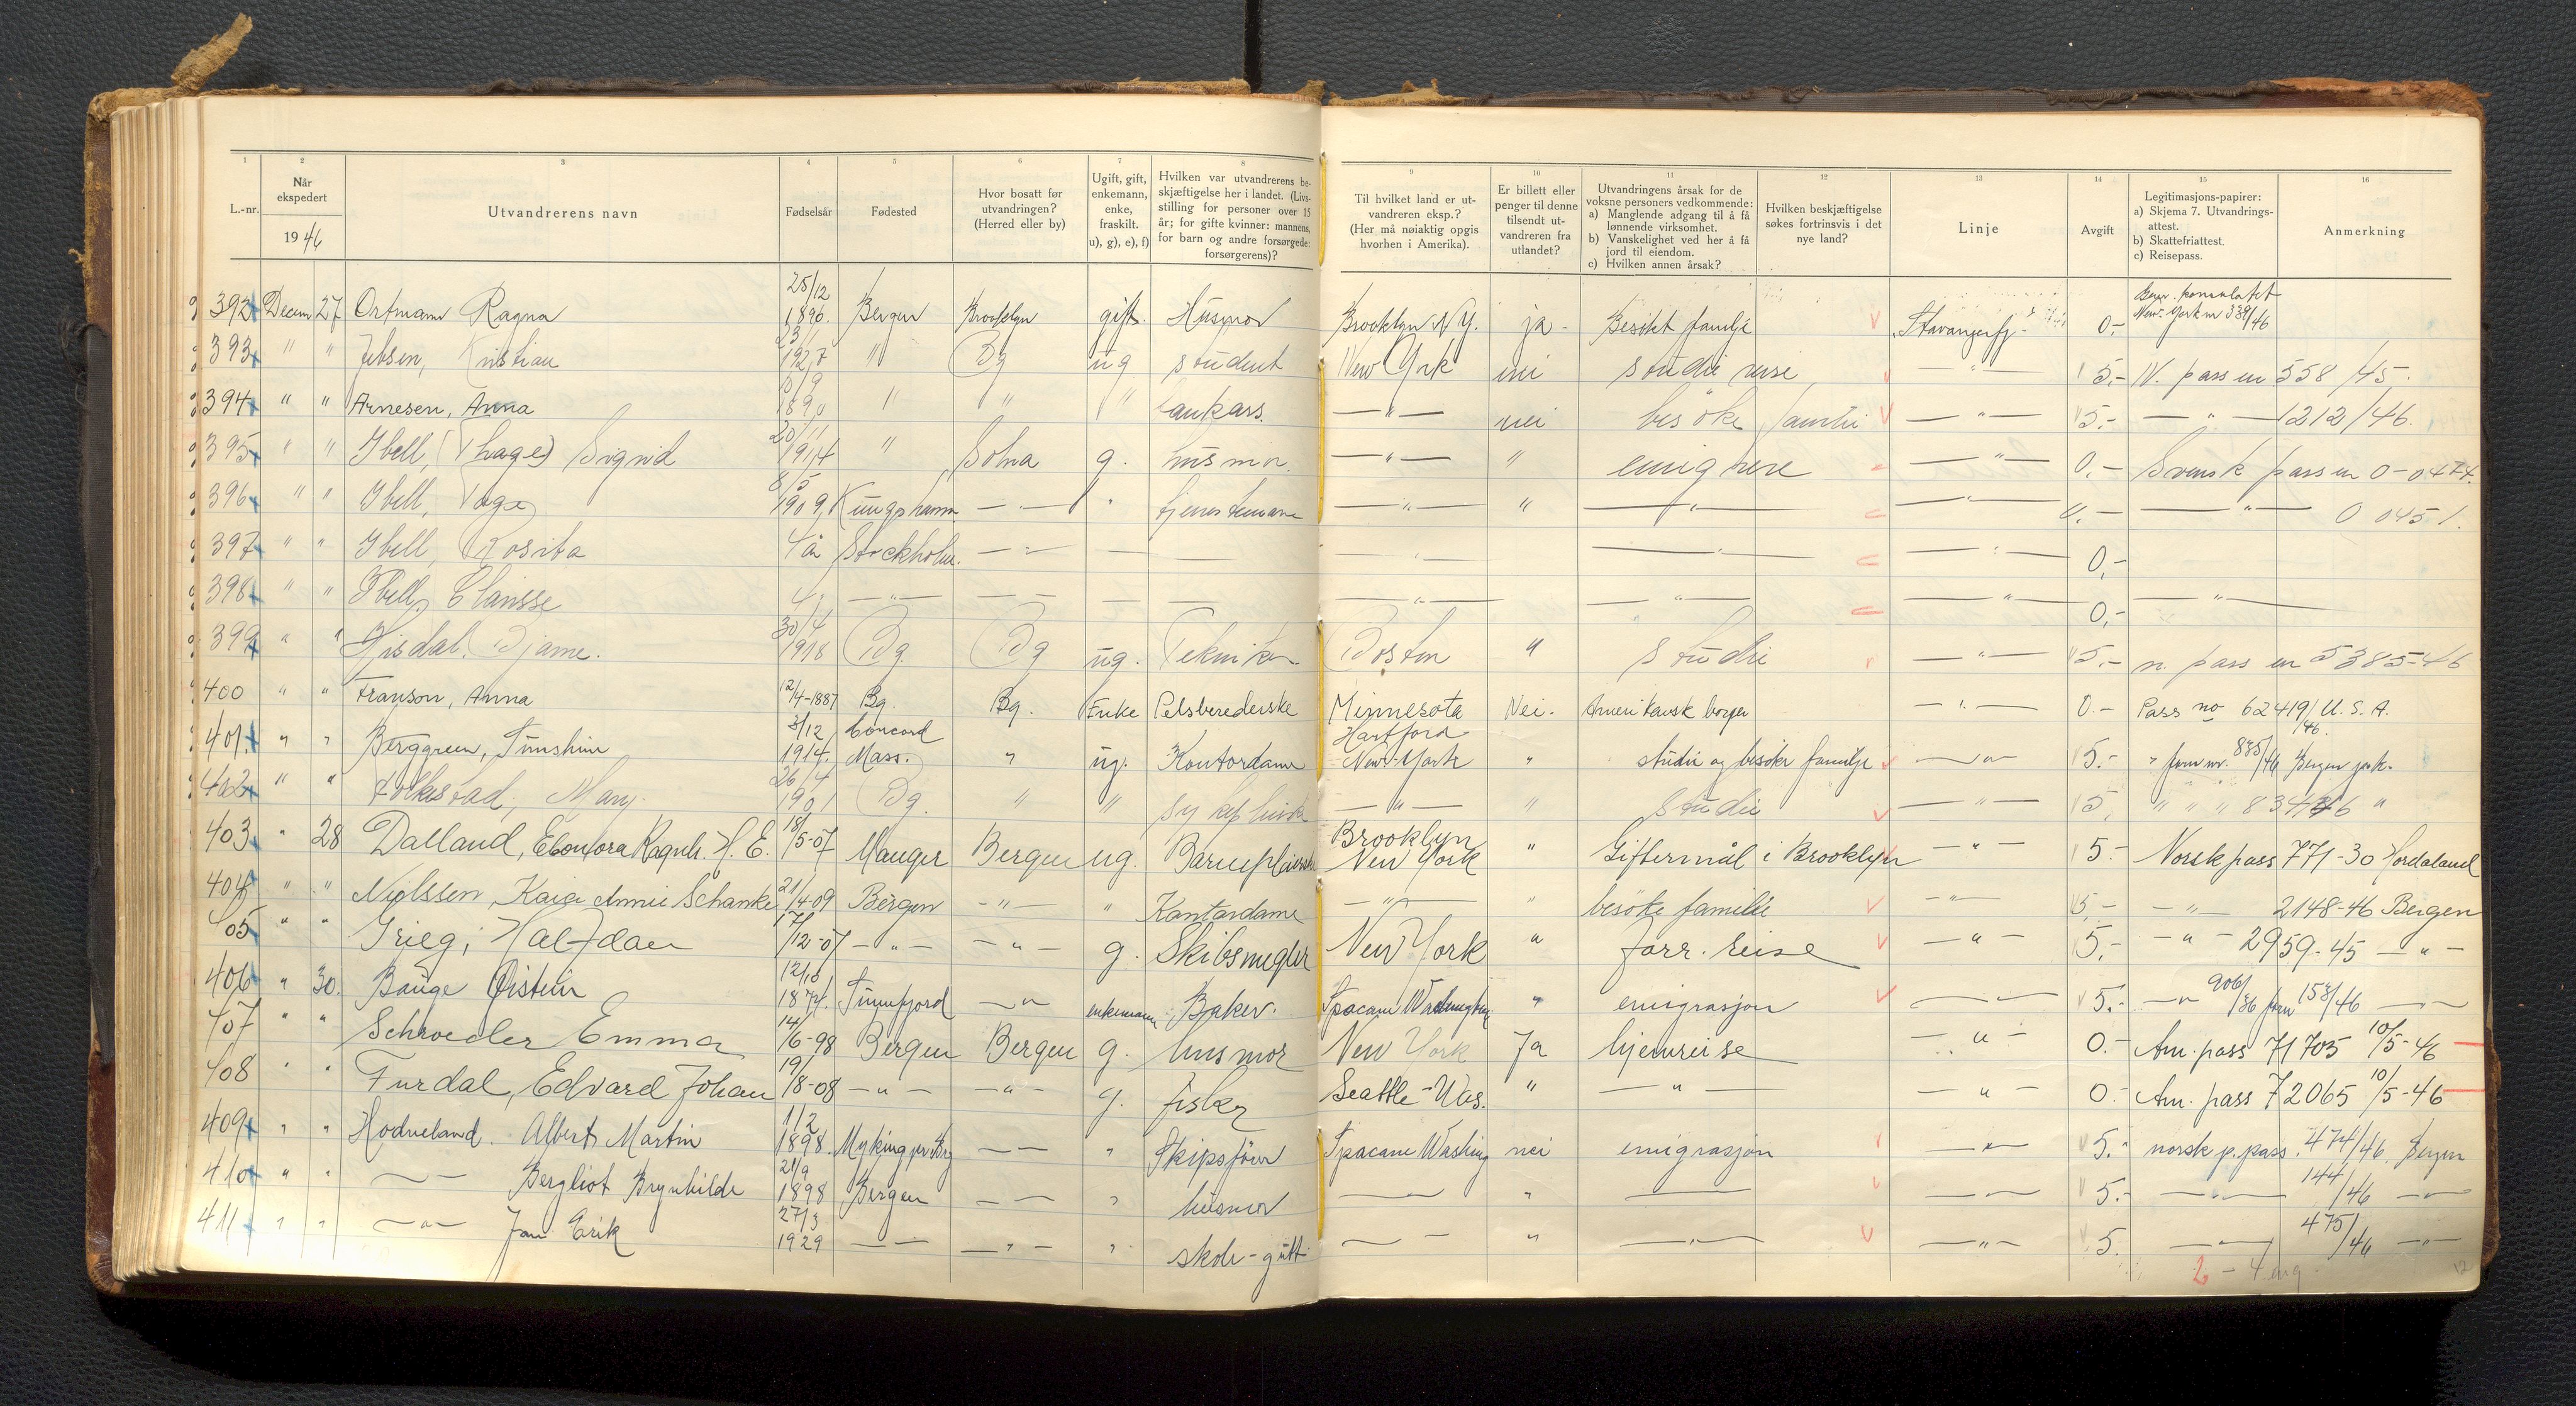 1 2 3 4 5 6 7 8 9 10 11 12 13 14 15 16
L.-nr.
Når ekspedert
1946
Utvandrerens navn
Fødselsår
Fødested
Hvor bosatt før utvandringen? (Herred eller by)
Ugift, gift, enkemann, enke, fraskilt. u), g), e), f)
Hvilken var utvandrerens beskjæftigelse her i landet. (Livsstilling for personer over 15 år; for gifte kvinner: mannens, for barn og andre forsørgede: forsørgerens)?
Til hvilket land er utvandreren eksp.? (Her må nøiaktig opgis hvorhen i Amerika).
Er billett eller penger til denne tilsendt utvandreren fra utlandet?
Utvandringens årsak for de voksne personers vedkommende:
a) Manglende adgang til å få lønnende virksomhet.
b) Vanskelighet ved her å få jord til eiendom.
c) Hvilken annen årsak?
Hvilken beskjæftigelse søkes fortrinsvis i det nye land?
Linje
Avgift
Legitimasjons-papirer:
a) Skjema 7. Utvandringsattest.
b) Skattefriattest.
c) Reisepass.
Anmerkning
392 Decem 27 Ortmann Ragna 25/12 1896. Bergen Brooklyn gift. Husmor Brooklyn N.Y. ja - Besøkt familje Stavangerfj - 0,- New-York nr 339/46
393 " " Jebsen, Kristian 1927 " Bg ug student New York nei studiereise - " - 5.- N. pass nr 558/45.
394 " " Arnesen, Anna 10/9 1890 " " " - " - nei besøke familie - " - 5.- - " - 1212/46.
395 " " Ibell, (Thage) Sigrid 20/11 1914 " Solna g. husmor. - " - " emigrere - " - 0.- Svensk pass nr 0-0474.
396 " " Ibell, Tage 8/5 1909 Kungshamn - " - " tjenestemann - " - " - " - - " - 0.- - " - 0 0451.
397 " " Ibell, Rosita 4 år Stockholm. - " - - - " - - " - - " - 0,-
398 " " Ibell, Clarisse 4. - " - - - - - " - - " - - " - 0,- - " -
399 " " Hisdal. Bjarne. 30/4 1918 Bg Bg ug. Tekniker Boston " studie - " - 5.- n. pass nr 5385-46
400 " " Franson, Anna 12/4-1887 Bg. Bg. Enke Pelsberederske Minnesota Nei. Amerikansk borger - " - 0.- Pass no 62419/46. U.S.A.
401 " " Berggreen, Sunshine 3/12 1914. Concord Mass. " ug. Kontordame Hartford New-York " studie og besøke familje - " - 5.- " forn nr. 835/46 Bergen p.k.
402 " " Folkestad, Mary. 26/4 1901 Bg. " " - " - " Studie - " - 5, " " " 834/46 "
403 " 28 Dalland, Eleonora Ragnh. H. E. 18/5-07 Manger Bergen ug. Barnepleierske Brooklyn New York " Giftermål i Brooklyn - " - 5.- Norsk pass 771-30 Hordaland
404 " " Nielssen, Kaia Annie Schanke 21/4-09 Bergen - " - " Kontordame - " - " besøke familie - " - 5,- - " - 2148-46 Bergen
405 " " Grieg, Halfdan 17/12-07 - " - - " - g. Skibsmegler New York " forr. reise - " - 5,- - " - 2959-45 - " -
406 " 30. Bauge Øistein 12/10 1874. - " - enkemann Baker. Spacane Washington " emigrasjon - 5.- - " 906/36 forn 153/46 - " -
407 " " Schroeder Emma 14/6-98 Bergen Bergen g. husmor New York Ja hjemreise - " - 0.- Am. pass 71703 10/5-46
408 " " Furdal, Edvard Johan 19/8-08 - " - - " - g. fisker Seattle - Was. " - " - - " - 0.- Am. pass 72065 10/5-46
409 " " Hodneland. Albert Martin 1/2 1898. Myking pr. Brg - - " Skipsfører Spacane Washing nei emigrasjon - " - 5.- norsk p. pass. 474/46. Bergen
410 " " - - Bergliot Brynhilde 21/9 1898 Bergen - - " husmor - - " - - - - 5.- - " - 144/46 - " -
411 " " - " - Jan Erik 27/3 1929 - - - " - " skole-gutt - - " - " - - " - 5. - " - 475/46 - " -
2 - 4 eng